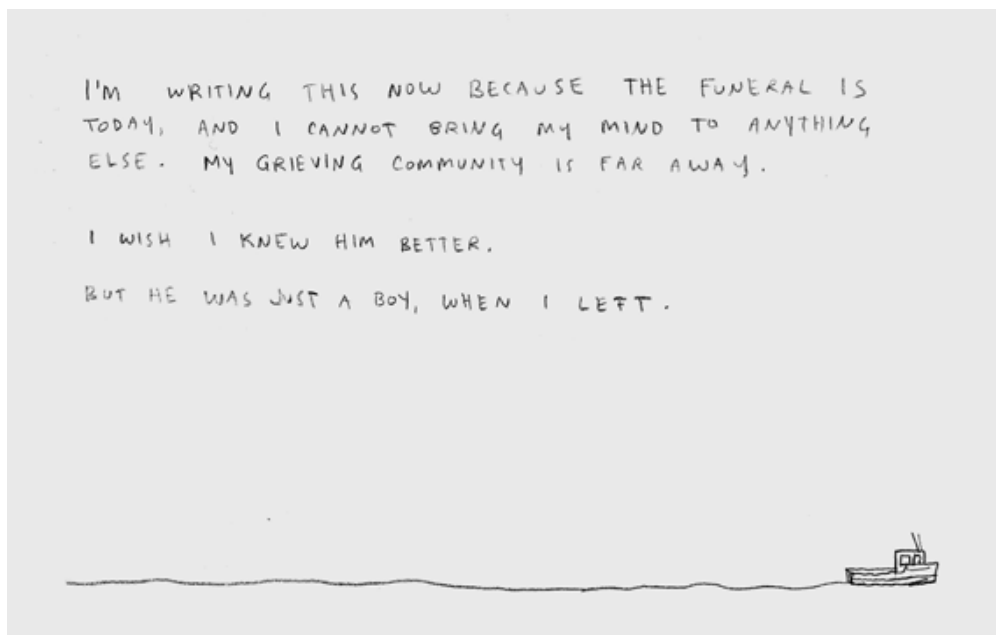 I'M WRITING THIS NOW BECAUSE THE FUNERAL IS
TODAY, AND I CANNOT BRING MY MIND TO ANYTHING
ELSE. MY GRIEVING COMMUNITY IS FAR AWAY.
I WISH I KNEW HIM BETTER.
BUT HE WAS JUST A BOY, WHEN I LEFT.